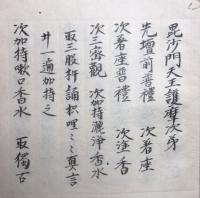 毘沙門天王護摩次第
先壇前普禮 次着座
次着座普禮 次塗香
次三密觀 次加持灑浄香水
取三股杵誦枳哩〻〻真言
廾一遍加持之
次加持嗽口香水 取獨古